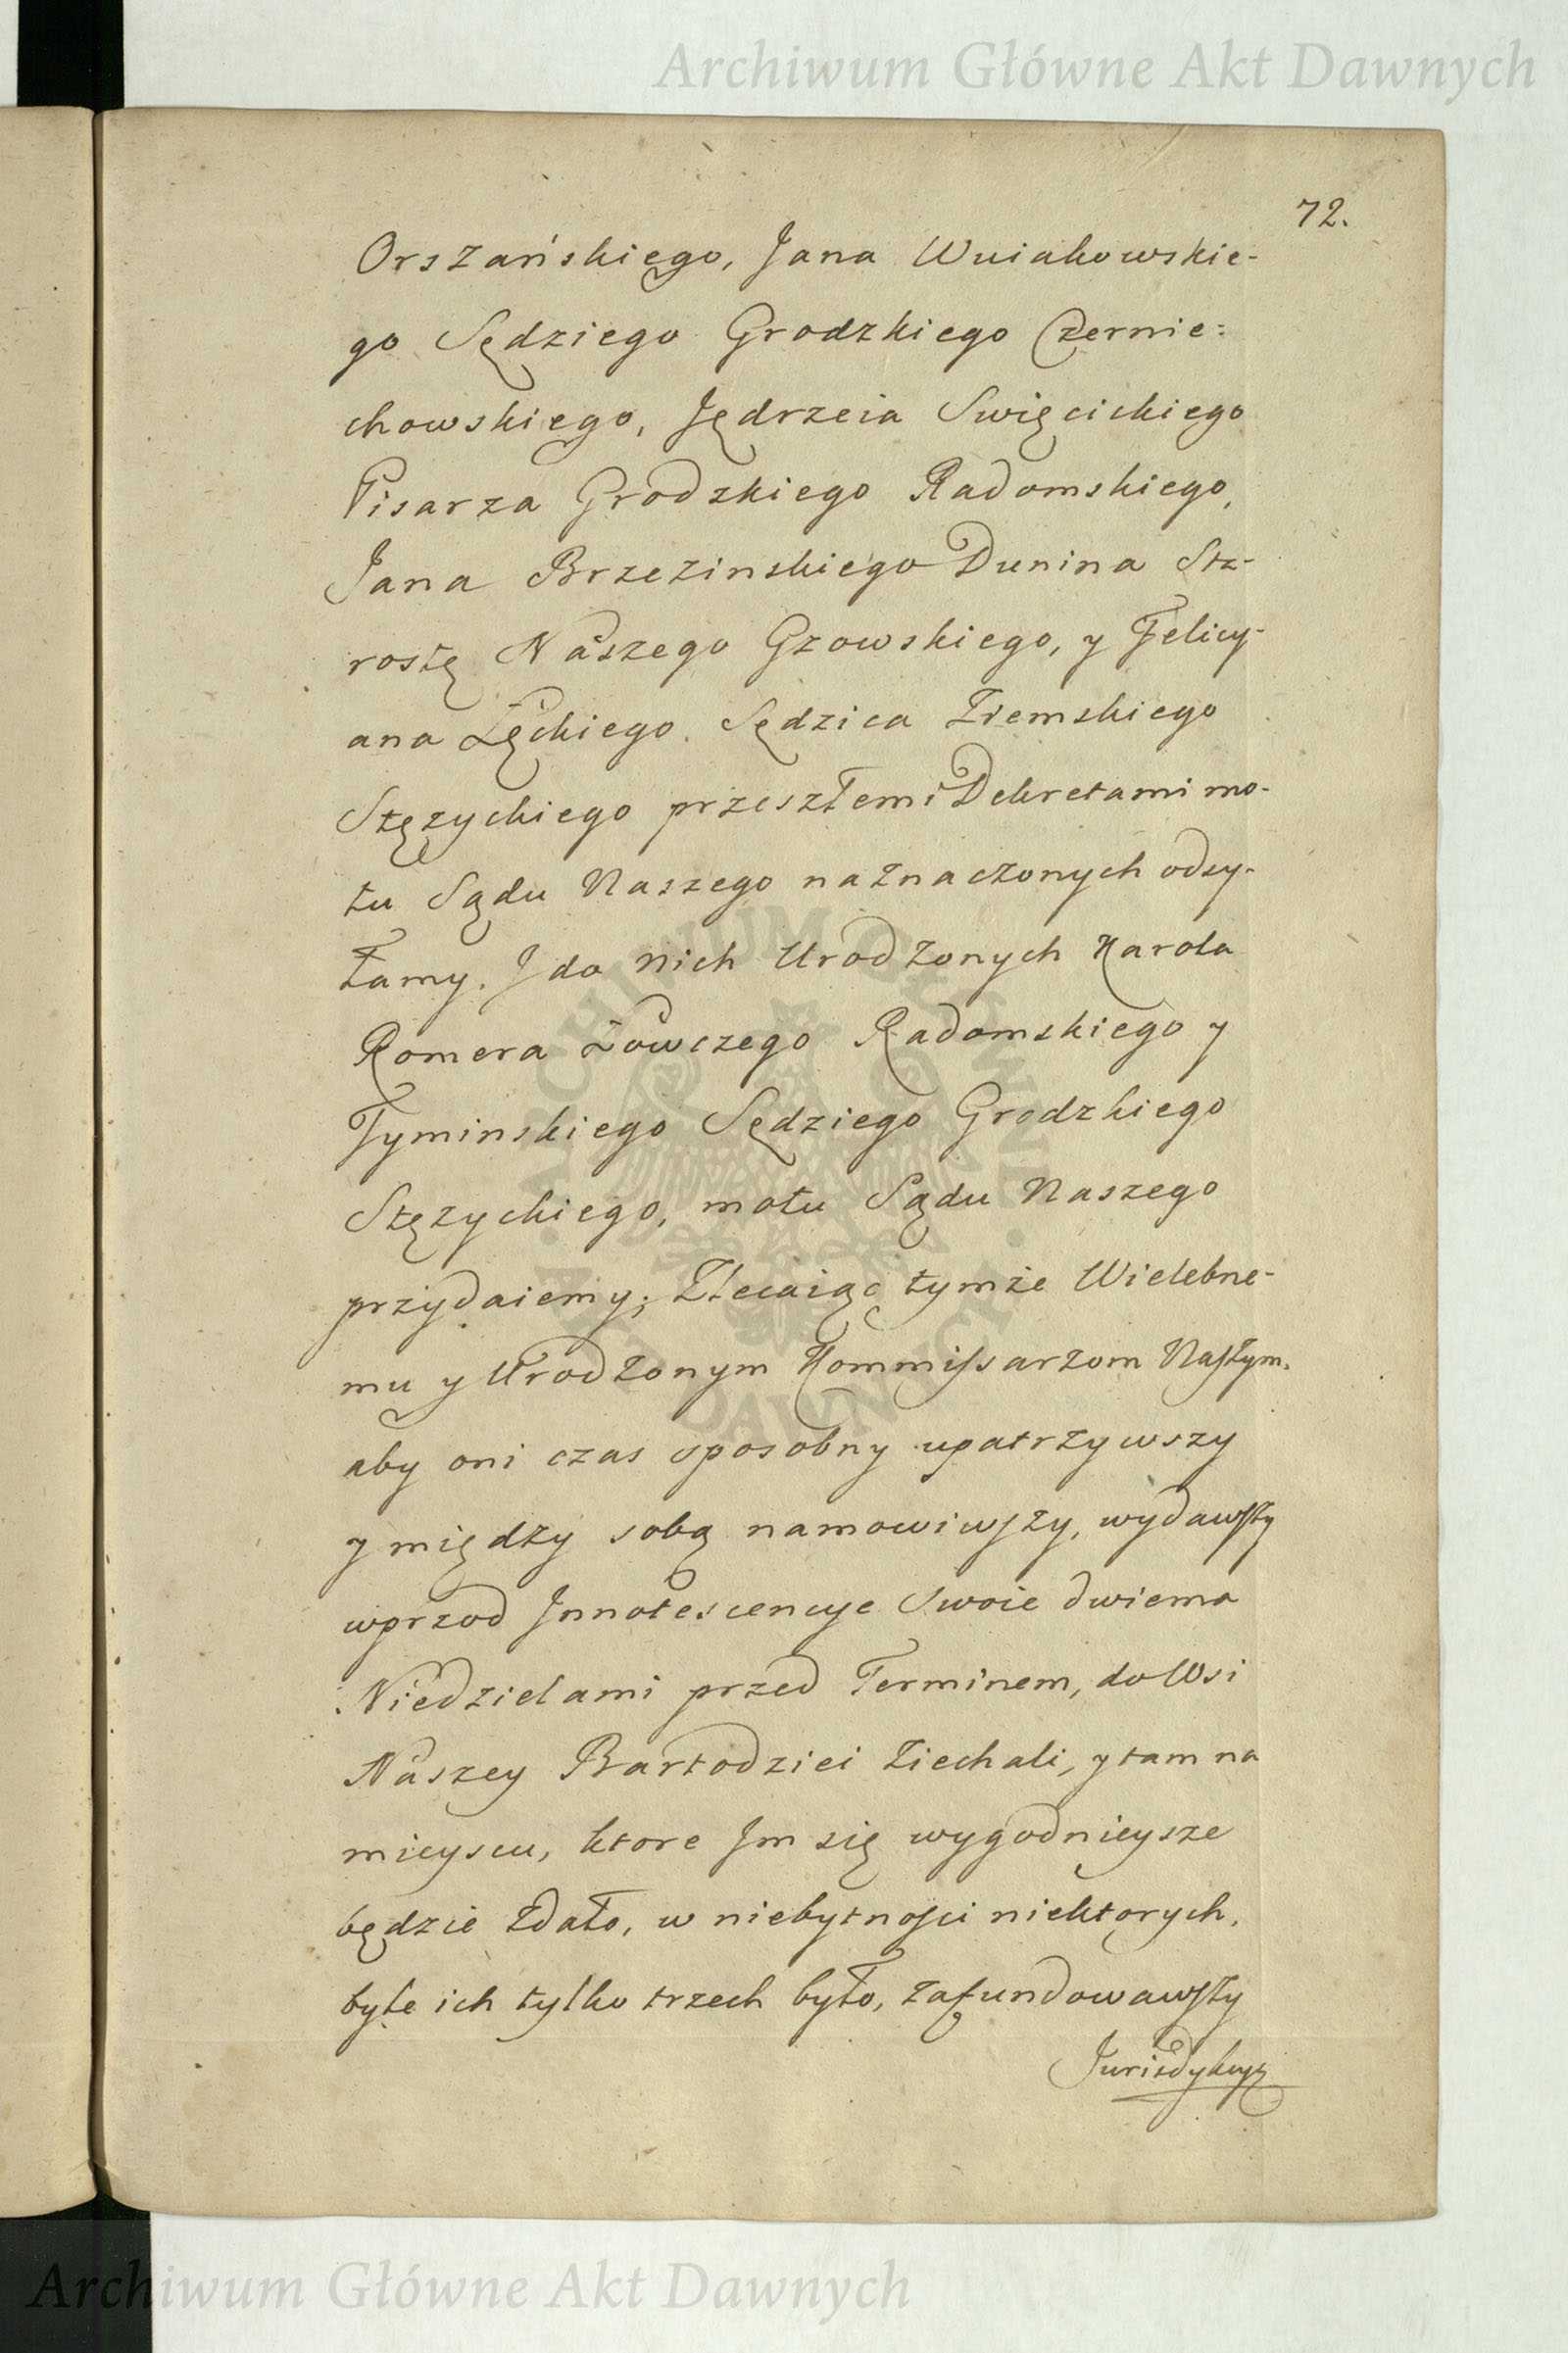 Archiwum Główne Akt Dawnych
72.
Orszańskiego, Jana Wuiakowskie-
go Sędziego Grodzkiego Czernie=
chowskiego, Jędrzeia Swięcickiego
Pisarza Grodzkiego Radomskiego,
Jana Brzezinskiego Dunina Sta-
rostę Naszego Gzowskiego, y Felicy-
ana Łęckiego. Sędzica Ziemskiego
Stęzyckiego przeszłemi Dekretami mo-
tu Sądu Naszego naznaczonych odsy-
łamy. I do nich Urodzonych Karola
Romera Łowczego Radomskiego y
Tyminskiego Sędziego Grodzkiego
Stęzyckiego, motu Sądu Naszego
przydaiemy; Zlecaiąc tymże Wielebne-
mu y Urodzonym Kommissarzom Naszym.
aby oni czas sposobny upatrzywszy
y między sobą namowiwszy, wydawszy
wprzod Innotescencye Swoie dwiema
Niedzielami przed Terminem, do Wsi
Naszey Bartodziei ziechali, y tam na
mieyscu, ktore Im się wygodnieysze
będzie zdało, w niebytności niektorych,
byle ich tylko trzech było, zafundowawszy
Jurisdykcyą
ARCHIWUM GŁÓWNE AKT DAWNYCH
Archiwum Główne Akt Dawnych